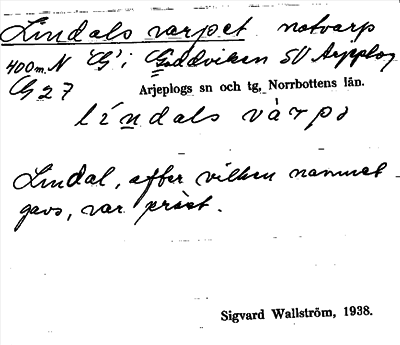 Lindals varpet notvarp
400 m. N "G" i Guddviken SV Arjeplog
G 27
Arjeplogs sn och tg, Norrbottens län.
líndals vàrpə
Lindal, efter vilken namnet
gavs, var präst.
Sigvard Wallström, 1938.